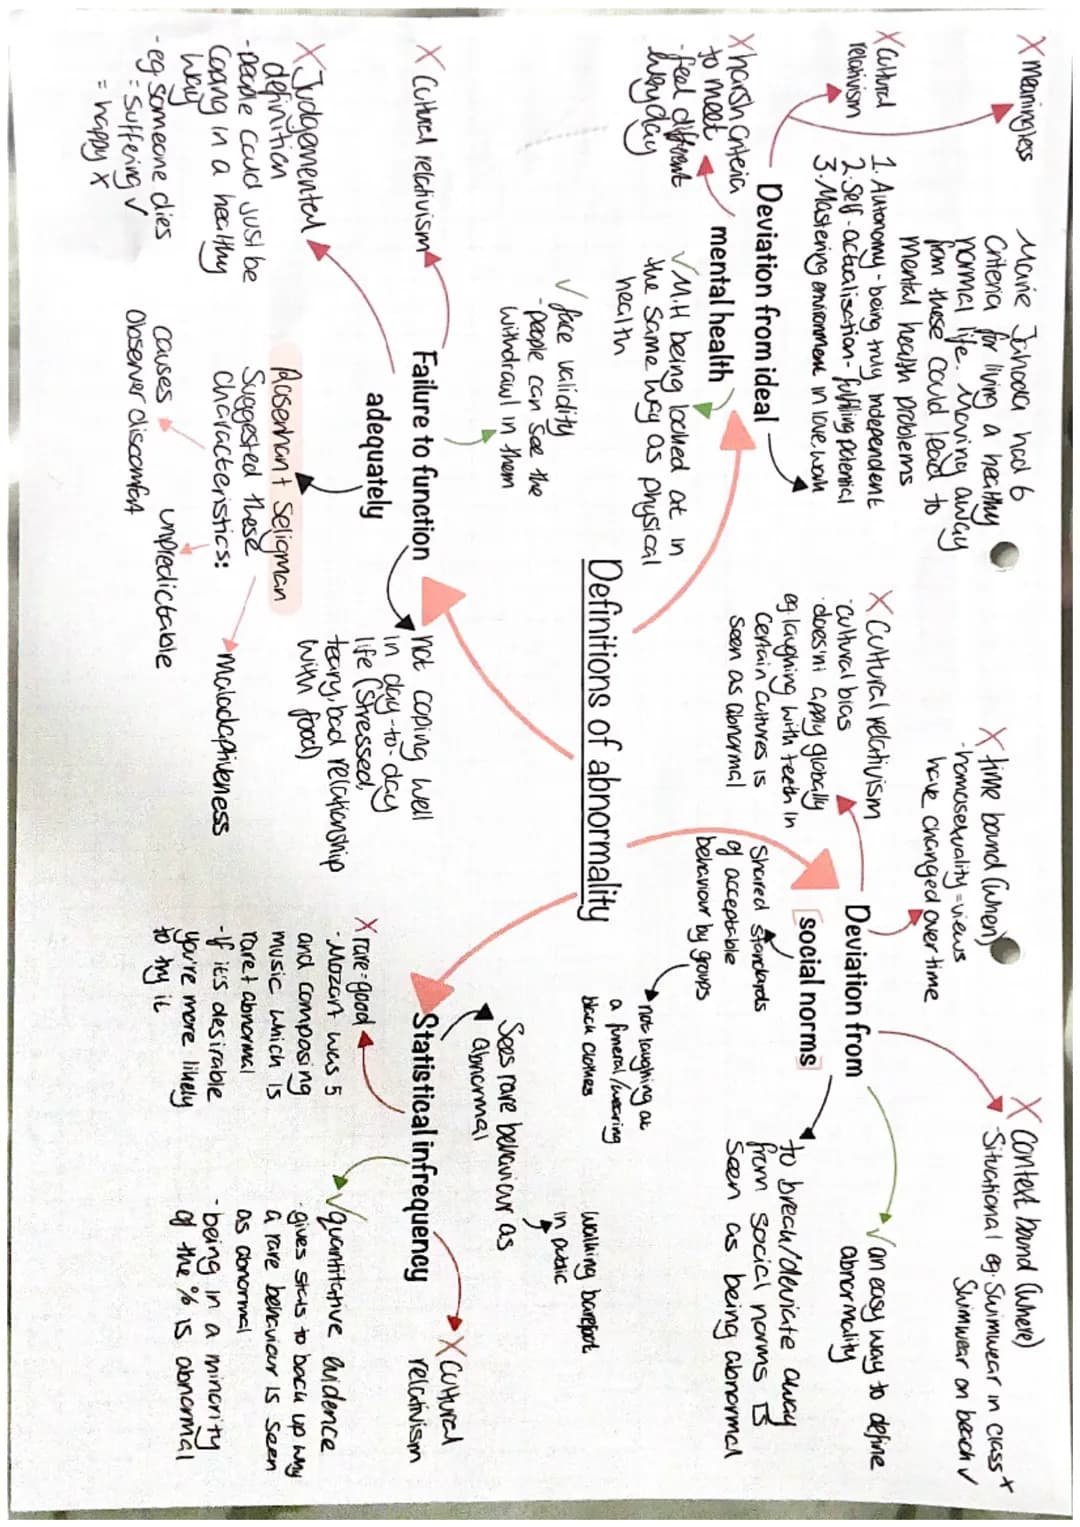 Definitions of abnormality
Deviation from ideal
mental health
Marie Jahoda had 6
criteria for living a healthy
normal life. Moving away
from these could lead to
mental health problems
1. Autonomy - being truly independent
2. Self-actualisation - fulfilling potential
3. Mastering environment in love, work
X meaningless
X Cultural
relativism
X harsh criteria
to meet
- feel different
everyday
✓ M.H being looked at in
the same way as physical
health
Deviation from
social norms
X Cultural relativism
- cultural bias
- doesn't apply globally
eg. laughing with teeth in
certain cultures is
seen as abnormal
X time bound (when)
- homosexuality = views
have changed over time
X Context bound (where)
- Situational eg. Swimwear in class X
Swimwear on beach ✓
✓ an easy way to define
abnormality
to break/deviate away
from social norms is
seen as being abnormal
Shared standards
of acceptable
behaviour by groups
not laughing at
a funeral/wearing
black clothes
walking barefoot
in public
Failure to function
adequately
✓ face validity
- people can see the
withdrawl in them
X Cultural relativism
X Judgemental
definition
- people could just be
coping in a healthy
way
- eg someone dies
= suffering ✓
= happy X
not coping well
in day-to-day
life (stressed,
teary, bad relationship
with food)
Rosenhan + Seligman
Suggested these
characteristics:
causes
observer discomfort
unpredictable
maladaptiveness
Statistical infrequency
Sees rare behaviour as
abnormal
X rare = good
- Mozart was 5
and composing
music which is
rare + abnormal
- if it's desirable
you're more likely
to try it
✓ quantitative evidence
- gives stats to back up why
a rare behaviour is seen
as abnormal
- being in a minority
of the % is abnormal
X Cultural
relativism